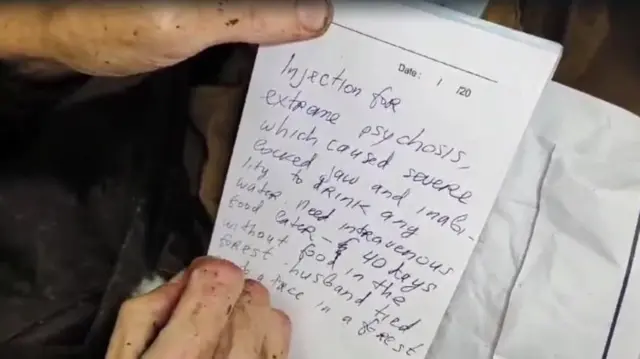 Date: / /20
Injection for
extreme psychosis,
which caused severe
locked jaw and inabi-
lity to drink any
water. Need intravenous
food later - 40 days
without food in the
forest. husband tied
a tree in a forest